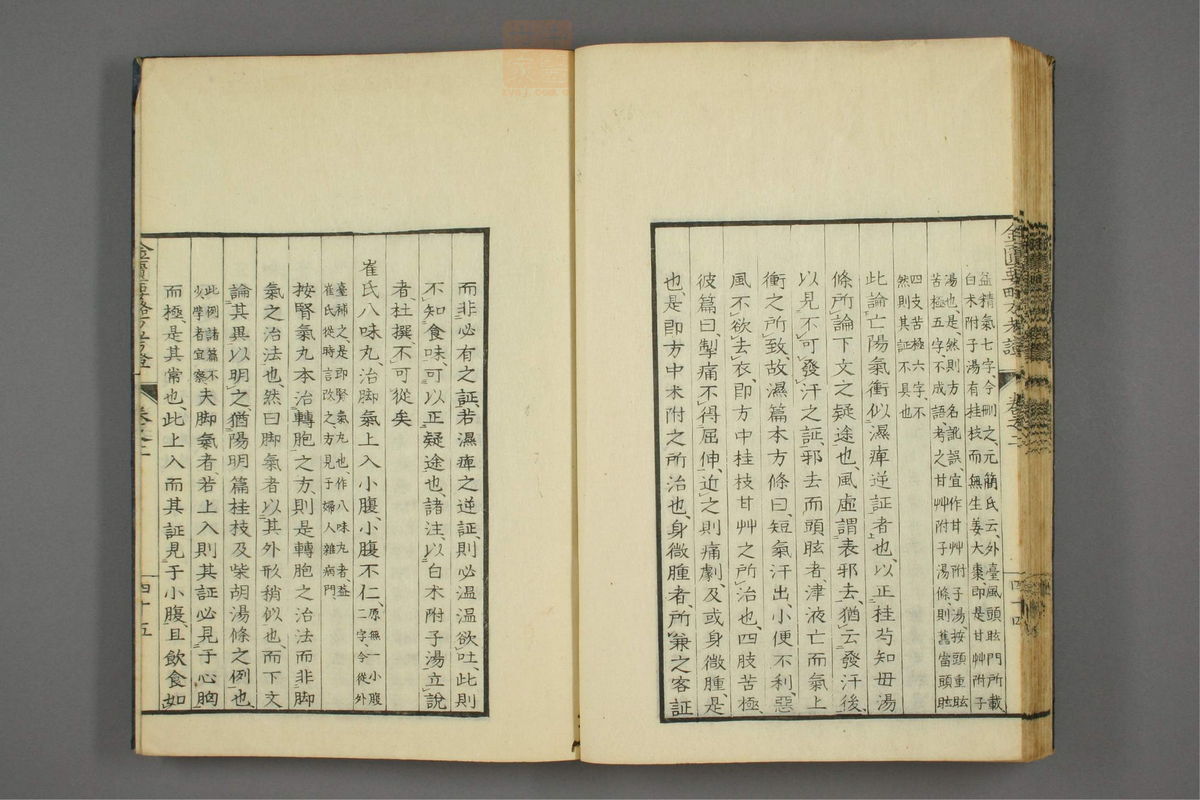 益精氣七字、今刪之、元簡氏云、外臺風頭眩門所載
白朮附子湯有桂枝而無生姜大棗、即是甘艸附子
湯也、是、然則方名訛誤、宜作甘艸附子湯、按頭重眩
苦極五字、不成語、考之甘艸附子湯條、則舊當頭眩
四支苦極六字、不
然則其証不具也
此論亡陽氣衝似濕痺逆証者也、以正桂芍知母湯
條所論下文之疑途也、風虛謂表邪去、猶云發汗後、
以見不可發汗之証、邪去而頭眩者、津液亡而氣上
衝之所致、故濕篇本方條曰、短氣汗出、小便不利、惡
風不欲去衣、即方中桂枝甘艸之所治也、四肢苦極、
彼篇曰、掣痛不得屈伸、近之則痛劇、及或身微腫、是
也、是即方中朮附之所治也、身微腫者、所兼之客証
金匱要略方考證
卷之二
四十四
而非必有之証、若濕痺之逆証、則必温温欲吐、此則
不知食味、可以正疑途也、諸注、以白朮附子湯立說
者、杜撰不可從矣
崔氏八味丸、治脚氣上入小腹、小腹不仁、原無一小腹
二字、今從外
臺補之、是即腎氣丸也、作八味丸者、蓋
崔氏從時言改之、方見于婦人雜病門、
按腎氣丸本治轉胞之方、則是轉胞之治法而非脚
氣之治法也、然曰脚氣者、以其外形稍似也、而下文
論其異以明之、猶陽明篇桂枝及柴胡湯條之例也、
此例諸篇不
少、學者宜察
夫脚氣者、若上入則其証必見于心胸
而極、是其常也、此上入而其証見于小腹、且飲食如
金匱要略方考證
卷之二
四十五